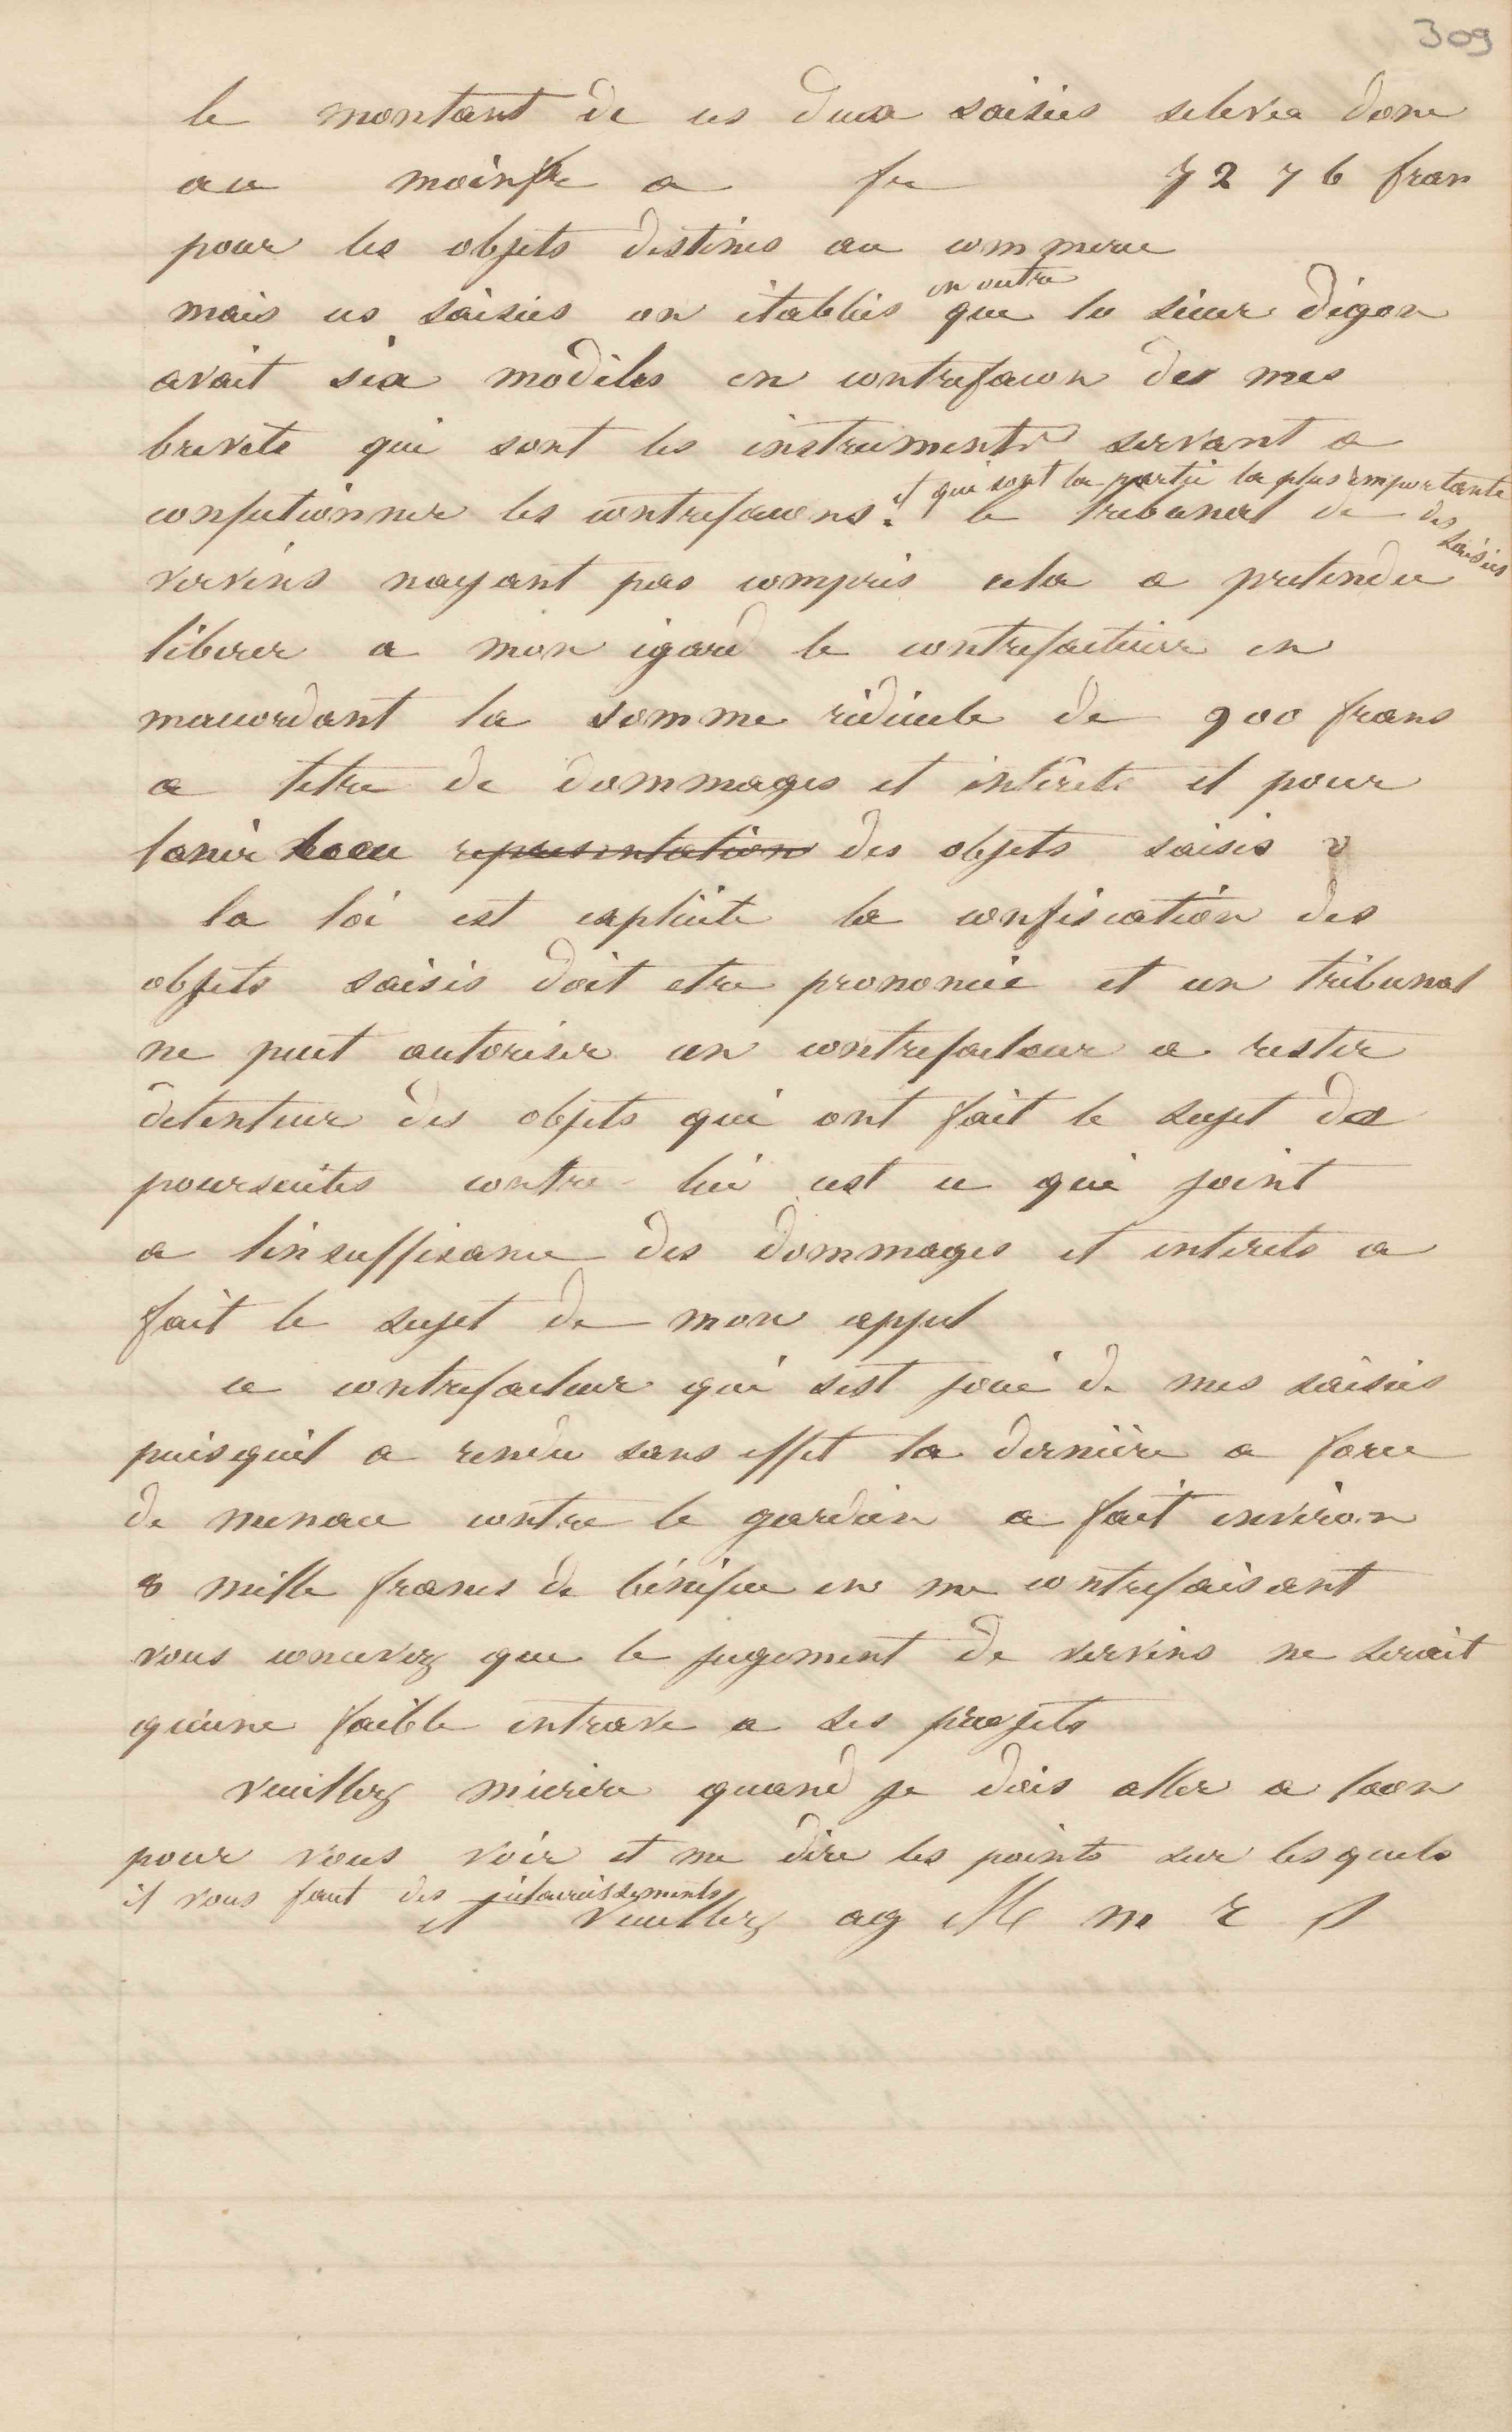 309
le montant de ces deux saisies selevea donc
au moins a fr 7276 fran
pour les objets destines au commerce
mais ces saisies on établies en outre que le sieur digon
avait six modèles en contrefacon des mes
brevets qui sont les instruments servant a
confectionner les contrefacons. et qui sont la partie la plus importante des saisies le tribunal de
vervins nayant pas compris cela a pretendu
libérer a mon égard le contrefacteur en
maccordant la somme ridicule de 900 frans
a titre de dommages et intérêts et pour
tenir lieu representation des objets saisis
la loi est explicite la confiscation des
objets saisis doit etre prononcée et un tribunal
ne peut autoriser un contrefacteur a rester
detenteur des objets qui ont fait le sujet de
poursuites contre lui cest ce qui joint
a linsuffisance des dommages et interets a
fait le sujet de mon appel
ce contrefacteur qui sest joué de mes saisies
puisquil a rendu sans effet la dernière a force
de menace contre le gardien a fait environ
8 mille francs de bénéfice en me contrefaisant
vous concevez que le jugement de vervins ne serait
qu'une faible entrave a ses projets
veuillez mécrire quand je dois aller a laon
pour vous voir et me dire les points sur lesquels
il vous faut des éclaircissements
et veuillez ag M m r s